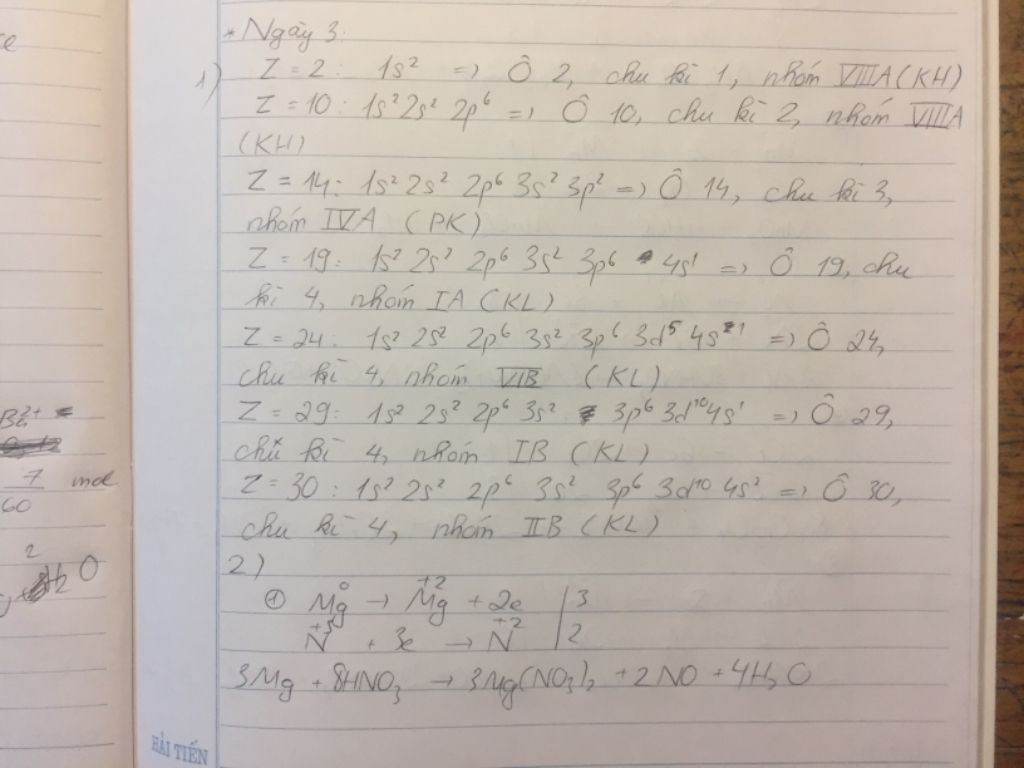 te
* Ngày 3:
1) Z = 2 : 1s² => Ô 2, chu kì 1, nhóm VIIIA (KH)
Z = 10 : 1s² 2s² 2p⁶ => Ô 10, chu kì 2, nhóm VIIIA
(KH)
Z = 14 : 1s² 2s² 2p⁶ 3s² 3p² => Ô 14, chu kì 3,
nhóm IVA (PK)
Z = 19 : 1s² 2s² 2p⁶ 3s² 3p⁶ 4s¹ => Ô 19, chu
kì 4, nhóm IA (KL)
Z = 24 : 1s² 2s² 2p⁶ 3s² 3p⁶ 3d⁵ 4s¹ => Ô 24,
chu kì 4, nhóm VIB (KL)
Z = 29 : 1s² 2s² 2p⁶ 3s² 3p⁶ 3d¹⁰ 4s¹ => Ô 29,
chu kì 4, nhóm IB (KL)
Z = 30 : 1s² 2s² 2p⁶ 3s² 3p⁶ 3d¹⁰ 4s² => Ô 30,
chu kì 4, nhóm IIB (KL)
7/60 mol
2)
2
O
⊕ Mg⁰ → Mg⁺² + 2e | 3
N⁺⁵ + 3e → N⁺² | 2
3Mg + 8HNO₃ → 3Mg(NO₃)₂ + 2NO + 4H₂O
HẢI TIẾN